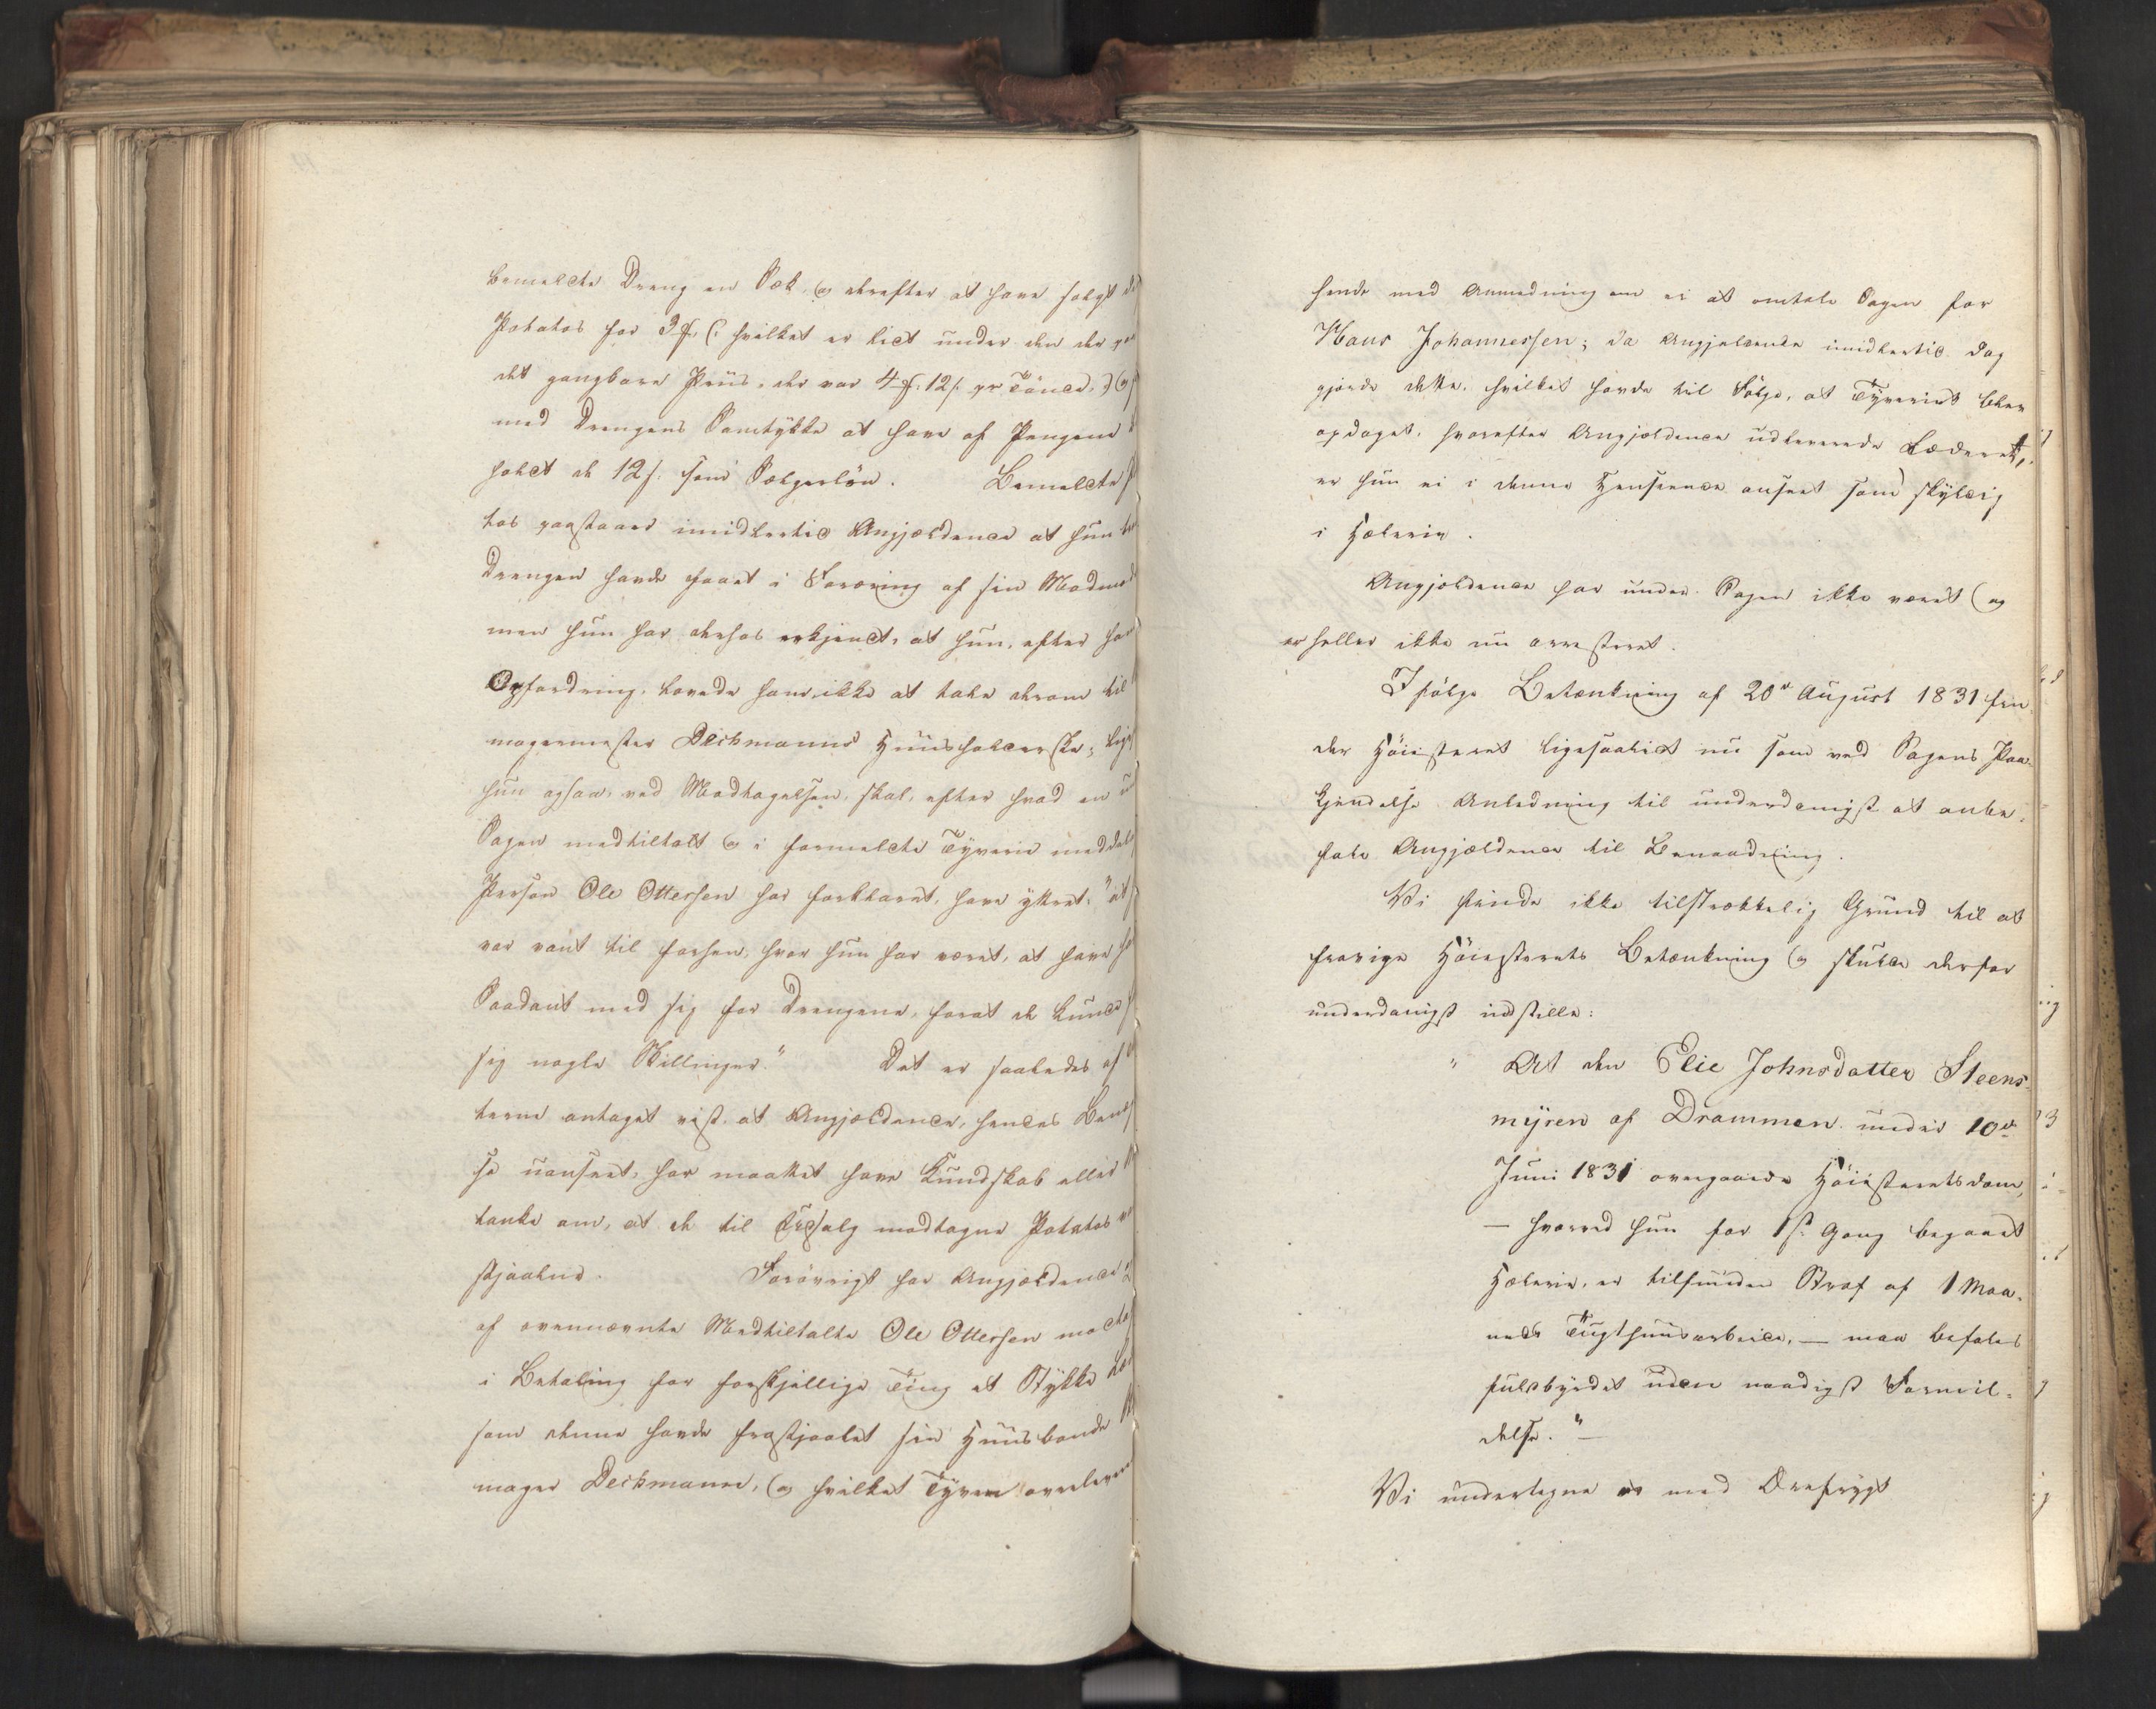 bemeldte Dreng en Sæk, og derefter at have solgt de
Potatos for 3 ƒ, (: hvilket er lidt under den der
det gangbare Priis, der var 4 ƒ: 12 s. pr Tönde,) og
med Drengens Samtykke at have af Pengene
holdt de 12 s. som Sælgerlön. Bemeldte
tos paastaaer imidlertid Angjældende at hun
Drengen havde faaet i Foræring af sin Madmod
men hun har derhos erkjendt, at hun, efter han
Opfordring, lovede ham ikke at tale derom til
magermester Dechmanns Huusholderske; lige
hun ogsaa, ved Modtagelsen, skal, efter hvad en
Sagen medtiltalt og i formeldte Tyverie meddel
Person Ole Ottersen har forklaret, have yttret: "at
var vant til forhen, hvor hun har været, at have
Saadant med sig for Drengene, forat de kunde
sig nogle Skillinger." Det er saaledes af
terne antaget vist, at Angjældende, hendes Benæg
se uanseet, har maattet have Kundskab eller
tanke om, at de til Udsalg modtagne Potatos
stjaalne. Forövrigt har Angjældende
af ovennævnte Medtiltalte Ole Ottersen mod
i Betaling for forskjellige Ting et Stykke Læ
som denne havde frastjaalet sin Huusbonde
mager Dechmann, og hvilket Tyven overlever
hende med Anmodning om ei at omtale Sagen for
Hans Johannessen; da Angjældende imidlertid dog
gjorde dette, hvilket havde til Fölge, at Tyveriet blev
opdaget, hvorefter Angjældende udleverede Læderet,
er hun ei i denne Henseende anseet som skyldig
i Hæleri.
Angjældende har under Sagen ikke været (og
er heller ikke nu arresteret.
Ifölge Betænkning af 20de August 1831 fin-
der Höiesteret ligesaalidt nu som ved Sagens Paa-
kjendelse Anledning til underdanigst at anbe-
fale Angjældende til Benaadning.
Vi finde ikke tilstrækkelig Grund til at
fravige Höiesterets Betænkning og skulde derfor
underdanigst indstille:
" At den Elie Johnsdatter Steens-
myren af Drammen under 10de
Juni 1831 overgaaede Höiesteretsdom,
— hvorved hun for 1ste Gang begaaet
Hæleri, er tilfunden Straf af 1 Maa-
neds Tugthuusarbeide, — maa befales
fuldbyrdet uden naadigst Formil-
delse." —
Vi undertegne os med Ærefrygt